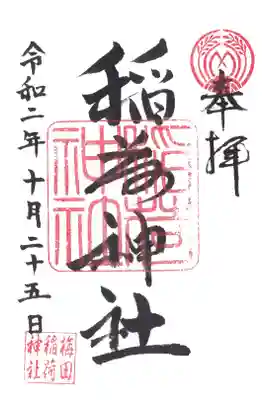 奉拝
稲荷神社
令和二年十月二十五日
梅田
稲荷
神社